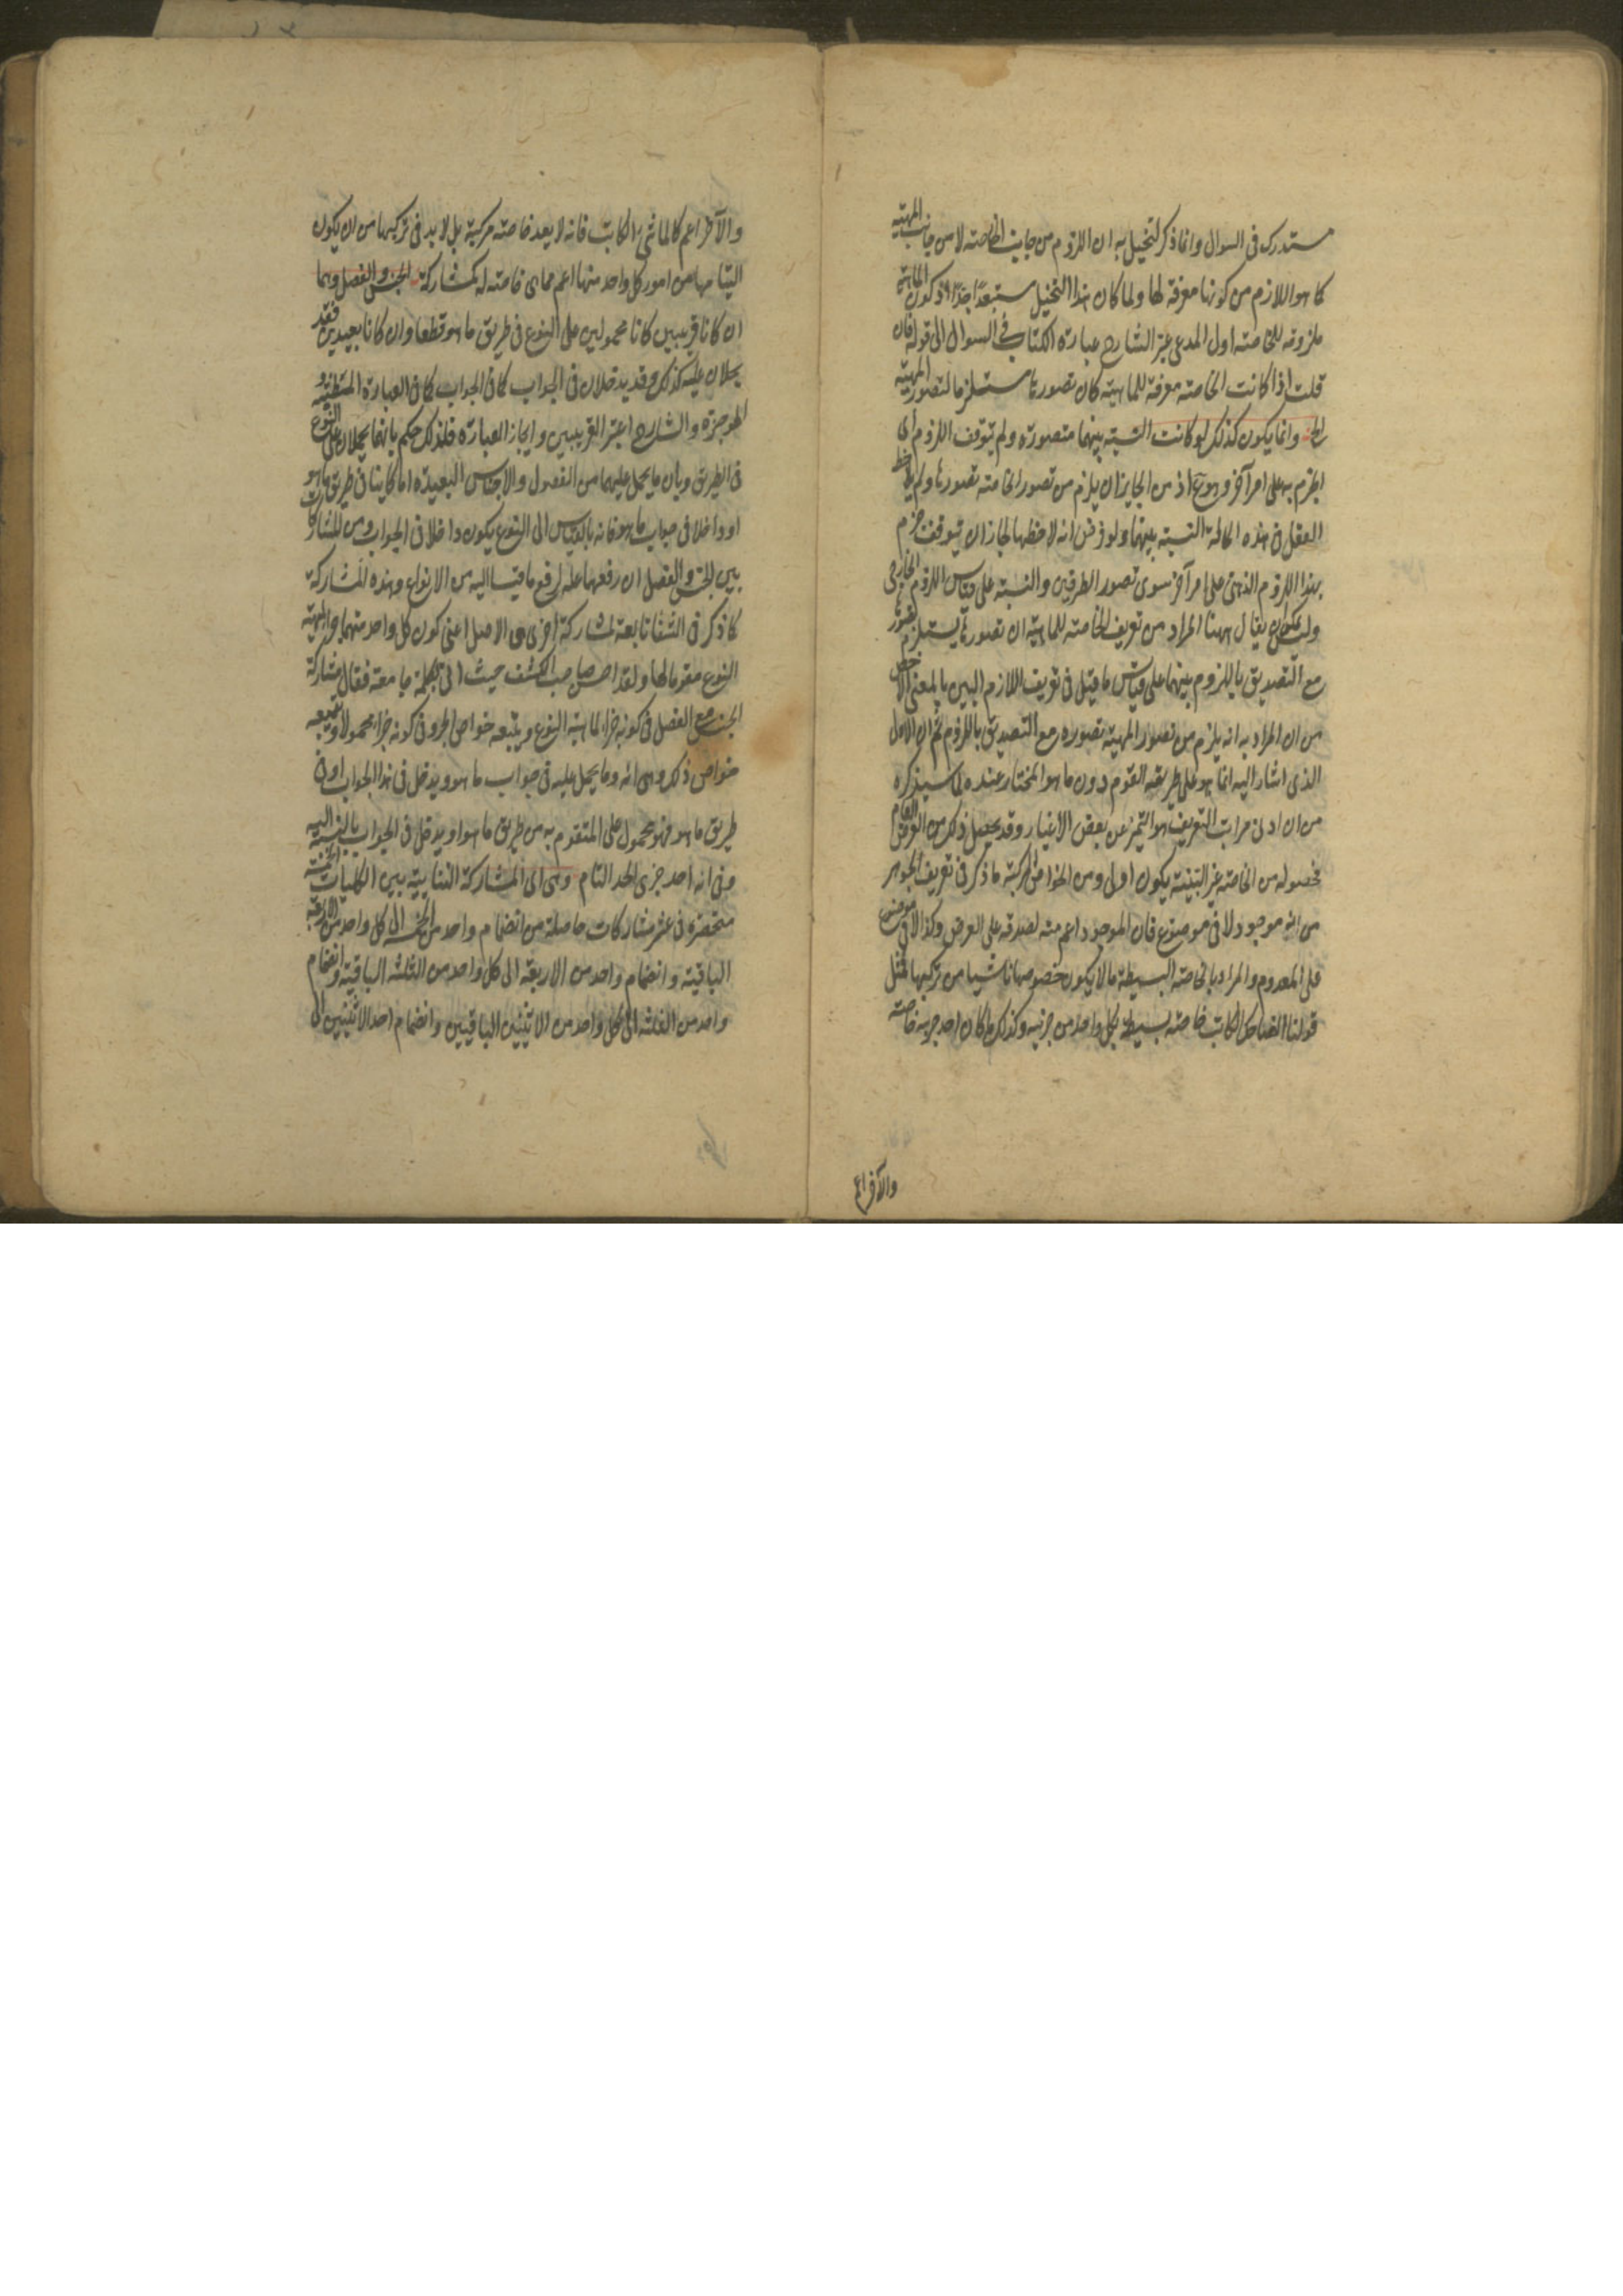 مستدرك فى السوال وانما ذكر لتخيل به ان اللزوم من جانب الخاصته لا من جانب المهية
كما هو اللازم من كونها معرفة لها ولما كان هذا التخيل مستبعدا جدا اذ كون الماهية
ملزومه للخاصته اول المدعى غير الشارح عبارة الكتاب فى السوال الى قوله فان
قلت اذا كانت الخاصته معرفة للماهية كان تصورها مستلزما لتصور المهية
الخ وانما يكون كذلك لو كانت النسبته بينهما متصورة ولم يتوقف اللزوم أى
الجزم به على امر آخر وهو مع اذ من الجايز ان يلزم من تصور الخاصته تصورها ولم يلاحظ
العقل فى هذه الحالة النسبته بينهما ولو فرض انه لاحظها لجاز ان يتوقف جزم
بهذا اللزوم الذهنى على امر آخر سوى تصور الطرفين والنسبة على قياس اللزوم الخارجى
ولك ان يقال ههنا المراد من تعريف الخاصته للماهية ان تصورها يستلزم تصورها
مع التصديق باللزوم بينهما على قياس ما قيل فى تعريف اللازم البين بالمعنى الاخص
من ان المراد به انه يلزم من تصور المهية تصوره مع التصديق باللزوم ثم ان الاول
الذى اشار اليه انما هو على طريقه القوم دون ما هو المختار عنده لما سيذكره
من ان ادنى مراتب التعريف هو التميز عن بعض الاغيار وقد يحصل ذلك من العرض العام
فحصوله من الخاصته غير البينة يكون اولى ومن الخواص المركبة ما ذكر فى تعريف الجوهر
من انه موجود لا فى موضوع فان الموجود اعم منه لصدقه على العرض وكذا لا فى موضوع
على المعدوم والمراد بالخاصته البسيطة ما لا يكون خصوصها ناشيا من تركيبها فمثل
قولنا الضاحك الكاتب خاصته بسيطة بكل واحد من جزئيه وكذلك ما كان احد جزئيه خاصته
والآخر اعم
والآخر اعم كالماشى الكاتب فانه لا يعد خاصته مركبة بل لا بد فى تركيبها من ان يكون
التيامها من امور كل واحد منها اعم مما هى خاصته له كمشاركة الجنس والفصل وهما
ان كانا قريبين كانا محمولين على النوع فى طريق ما هو قطعا وان كانا بعيدين فقد
يحملان عليه كذلك وقد يدخلان فى الجواب كما فى الجواب كما فى العبارة المنطقية
الموجزة والشارح اعتبر القريبين وايجاز العبارة فلذلك حكم بانهما يحملان على النوع
فى الطريق وبان ما يحمل عليهما من الفصول والاجناس البعيدة اما كاينا فى طريق ما هو
او داخلا فى جواب ما هو فانه بالقياس الى النوع يكون داخلا فى الجواب ومن المشاركات
بين الجنس والفصل ان رفعهما علة لرفع ما قيسا اليه من الانواع وهذه المشاركة
كما ذكر فى الشفا تابعة لمشاركة اخرى هى الاصل اعنى كون كل واحد منهما جزء لمهية
النوع مقوما لها ولقد احسن صاحب الكشف حيث اتى بكلمة جامعة فقال مشاركة
الجنس مع الفصل فى كونه جزء لماهية النوع ويتبعه خواص الجزء وفى كونه جزء محمولا ويتبعه
خواص ذلك وهى انه وما يحمل عليه فى جواب ما هو ويدخل فى هذا الجواب او فى
طريق ما هو فهو محمول على المتقوم به من طريق ما هو او يدخل فى الجواب بالنسبة اليه
وفى انه احد جزئى الحد التام وهى اى المشاركة الثنايية بين الكليات الخمسة
منحصرة فى عشر مشاركات حاصلة من انضمام واحد من الخمسه الى كل واحد من الاربعة
الباقية وانضمام واحد من الاربعة الى كل واحد من الثلثه الباقية وانضمام
واحد من الثلثه الى كل واحد من الاثنين الباقيين وانضمام احد الاثنين الى